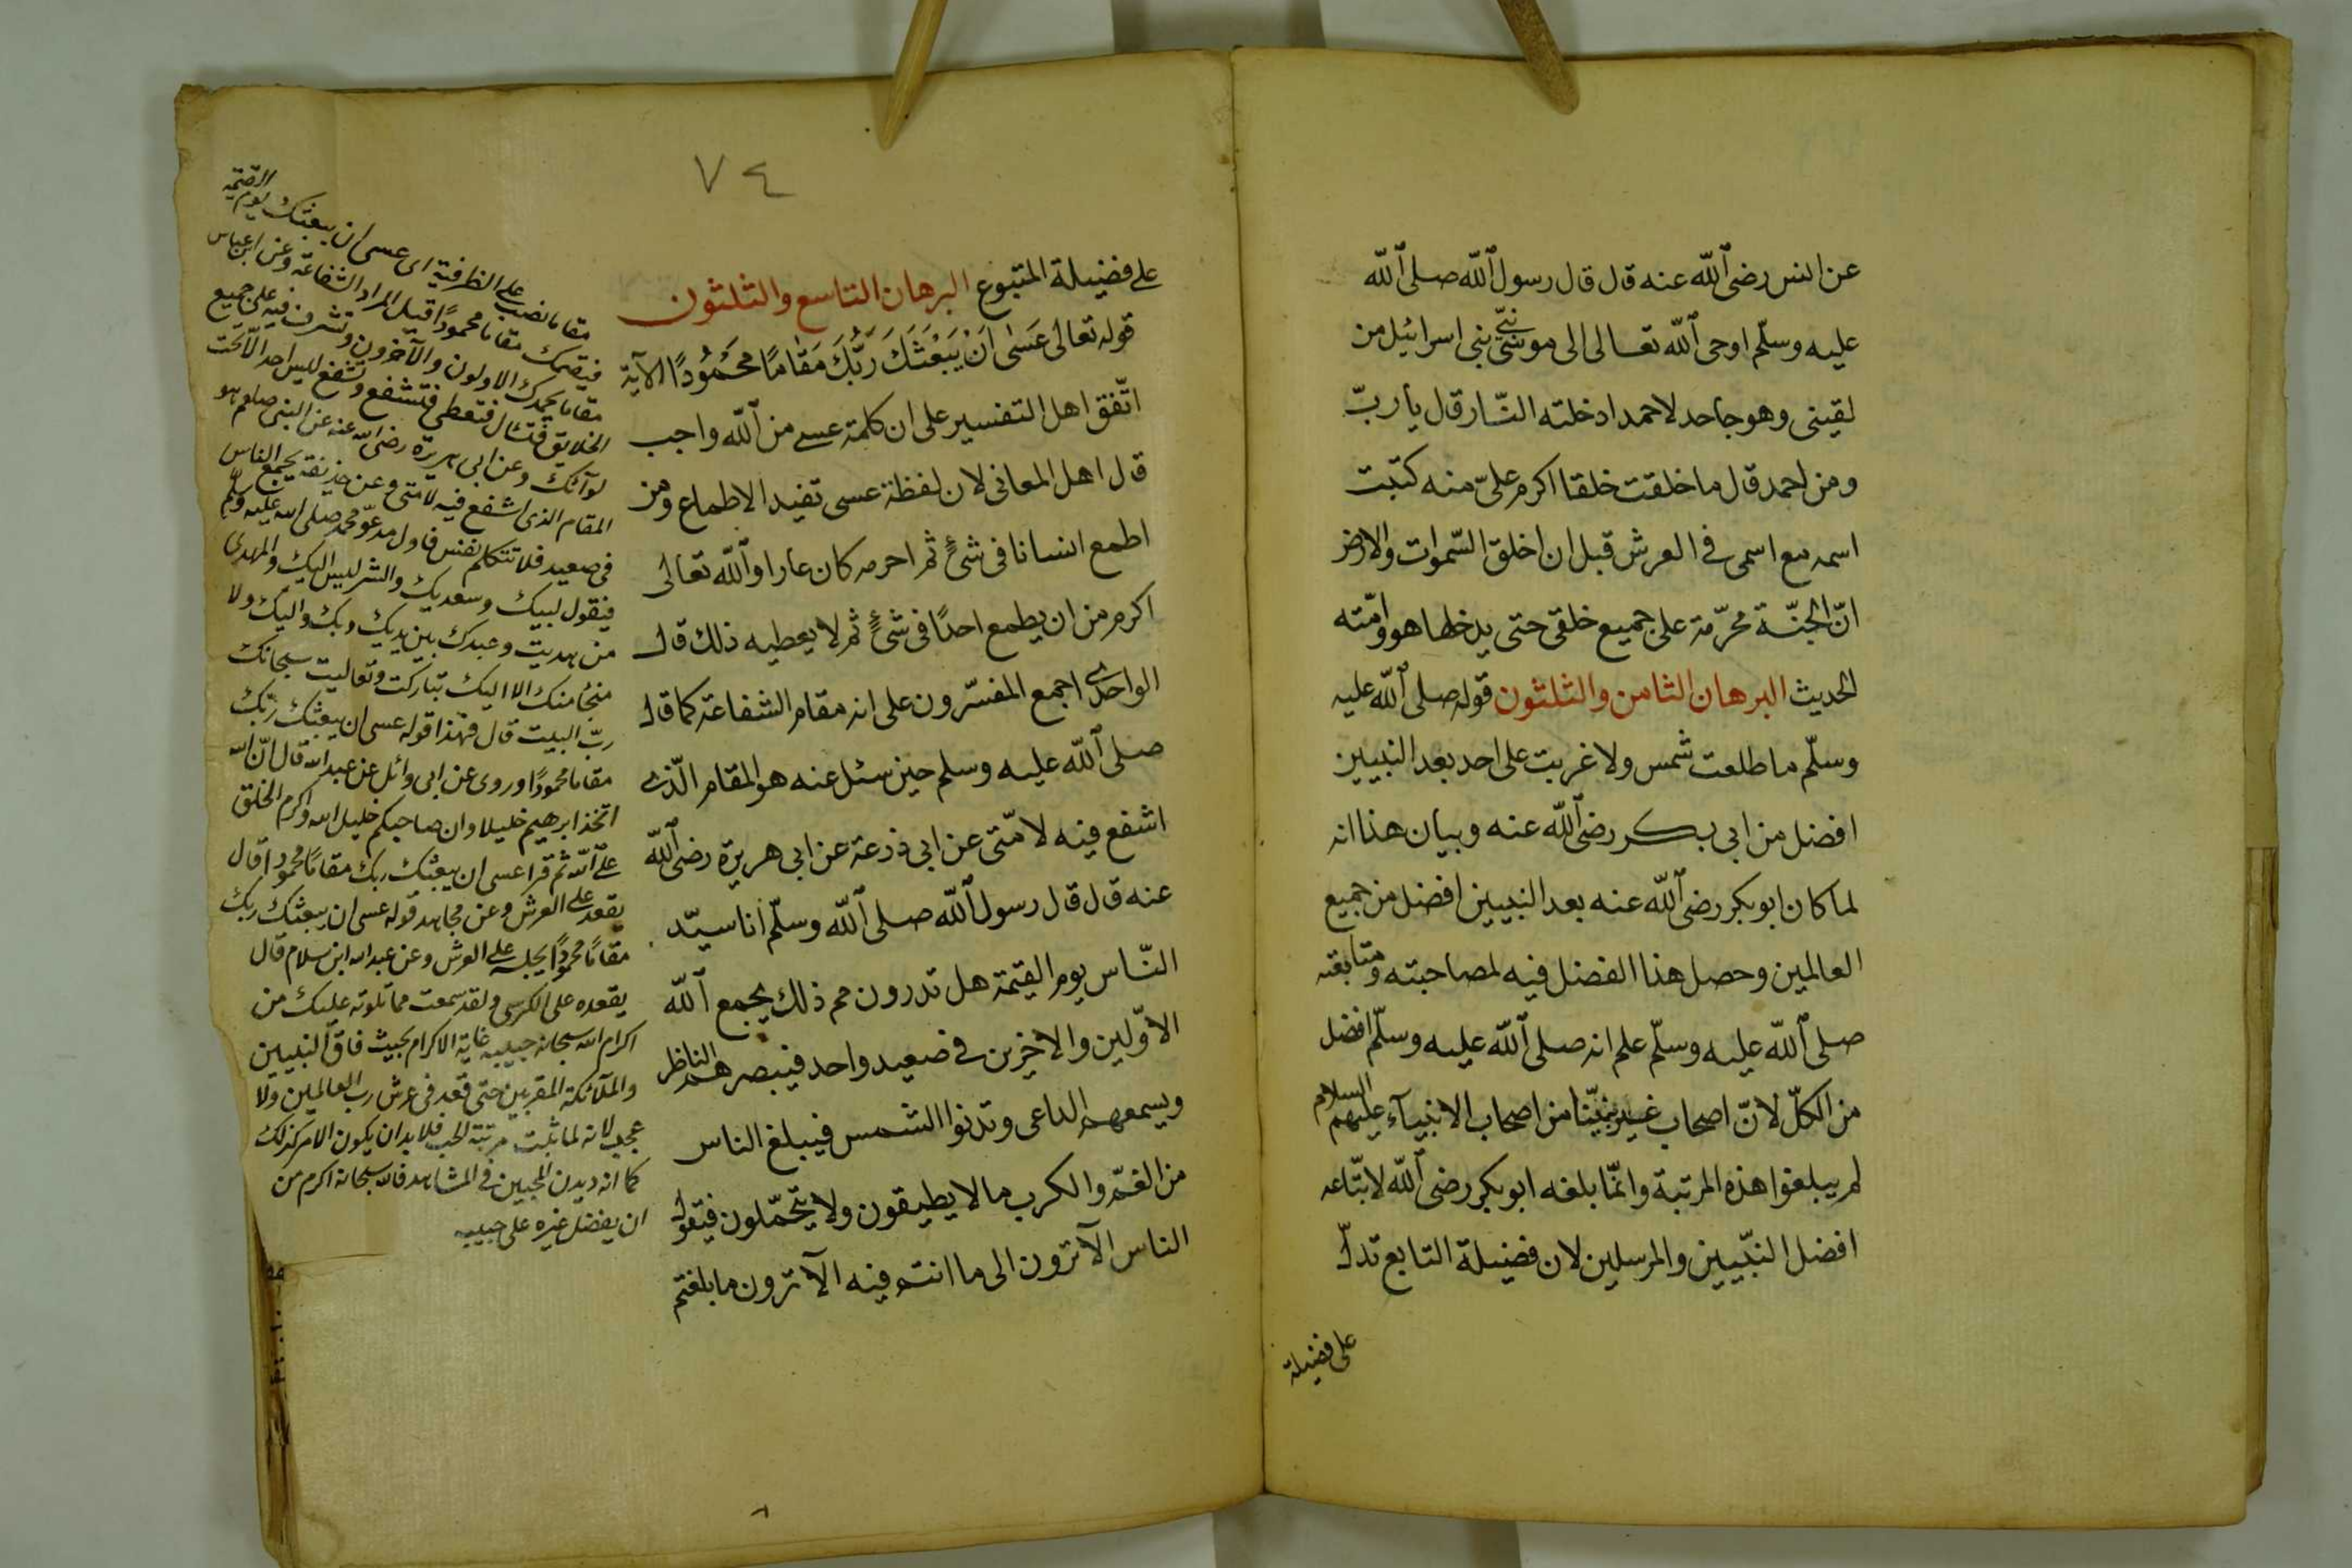 عن انس رضى الله عنه قال قال رسول الله صلى الله
عليه وسلّم اوحى الله تعالى الى موسى نبىّ بنى اسرائيل من
لقينى وهو جاحد لاحمد ادخلته النّار قال يا ربّ
ومن احمد قال ما خلقت خلقا اكرم علىّ منه كتبت
اسمه مع اسمى فى العرش قبل ان اخلق السّموات والارض
انّ الجنّة محرّمة على جميع خلقى حتى يدخلها هو وامّته
الحديث البرهان الثامن والثلثون قوله صلى الله عليه
وسلّم ما طلعت شمس ولا غربت على احد بعد النبيين
افضل من ابى بكر رضى الله عنه وبيان هذا انه
لما كان ابو بكر رضى الله عنه بعد النبيين افضل من جميع
العالمين وحصل هذا الفضل فيه لمصاحبته ومتابعته
صلى الله عليه وسلّم علم انه صلى الله عليه وسلّم افضل
من الكلّ لانّ اصحاب غير نبيّنا من اصحاب الانبيآء عليهم السلام
لم يبلغوا هذه المرتبة وانّما بلغه ابو بكر رضى الله لاتّباعه
افضل النبّيين والمرسلين لان فضيلة التابع تدلّ
على فضيلة
٧٤
على فضيلة المتبوع البرهان التاسع والثلثون
قوله تعالى عَسٰى اَنْ يَبْعَثَكَ رَبُّكَ مَقَامًا مَحْمُوْدًا الآية
اتّفق اهل التفسير على ان كلمة عسى من الله واجب
قال اهل المعانى لان لفظة عسى تفيد الاطماع ومن
اطمع انسانا فى شئ ثم احرمه كان عارا والله تعالى
اكرم من ان يطمع احدًا فى شئ ثم لا يعطيه ذلك قال
الواحدى اجمع المفسّرون على انه مقام الشفاعة كما قال
صلى الله عليه وسلم حين سئل عنه هو المقام الّذى
اشفع فيه لامّتى عن ابى ذرعة عن ابى هريرة رضى الله
عنه قال قال رسول الله صلى الله وسلّم انا سيّد
النّاس يوم القيمة هل تدرون مم ذلك يجمع الله
الاوّلين والاخرين فى صعيد واحد فيبصرهم الناظر
ويسمعهم الداعى وتدنوا الشمس فيبلغ الناس
من الغمّ والكرب ما لا يطيقون ولا يتحمّلون فيقول
الناس الا ترون الى ما انتم فيه الا ترون ما بلغتم
مقاما نصب على الظرفية اى عسى ان يبعثك يوم القيمة
فيقيمك مقاما محمودًا قيل المراد الشفاعة وعن ابن عباس
مقاما يحمدك الاولون والآخرون وتشرف فيه على جميع
الخلايق فتسال فتعطى فتشفع وتشفع ليس احد الّا تحت
لوآئك وعن ابى هريرة رضى الله عنه عن النبى صلعم هو
المقام الذى اشفع فيه لامتى وعن حذيفة يجمع الناس
فى صعيد فلا تتكلم نفس فاول مدعوّ محمد صلى الله عليه وسلّم
فيقول لبيك وسعديك والشر ليس اليك والمهدى
من هديت وعبدك بين يديك وبك واليك ولا
منجأ منك الا اليك تباركت وتعاليت سبحانك
ربّ البيت قال فهذا قوله عسى ان يبعثك ربّك
مقاما محمودًا وروى عن ابى وائل عن عبد الله قال انّ الله
اتخذ ابرهيم خليلا وان صاحبكم خليل الله واكرم الخلق
على الله ثم قرأ عسى ان يبعثك ربك مقامًا محمودا قال
يقعد على العرش وعن مجاهد قوله عسى ان يبعثك ربك
مقامًا محمودًا يجلسه على العرش وعن عبد الله ابن سلام قال
يقعده على الكرسى ولقد سمعت مما تلوته عليك من
اكرام الله سبحانه حبيبه غاية الاكرام بحيث فاق النبيين
والملآئكة المقربين حتى قعد فى عرش رب العالمين ولا
عجب لانه لما ثبت مرتبة الحب فلا بد ان يكون الامر كذلك
كما انه ديدن المحبين فى المشاهد فالله سبحانه اكرم من
ان يفضل غيره على حبيبه